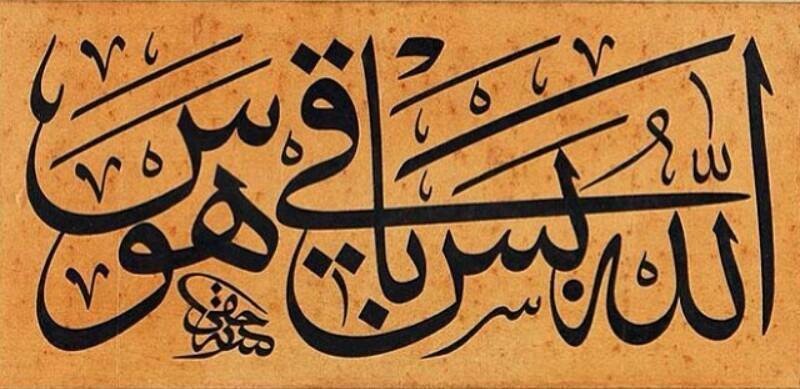 الله بس باقی هوس
حقی